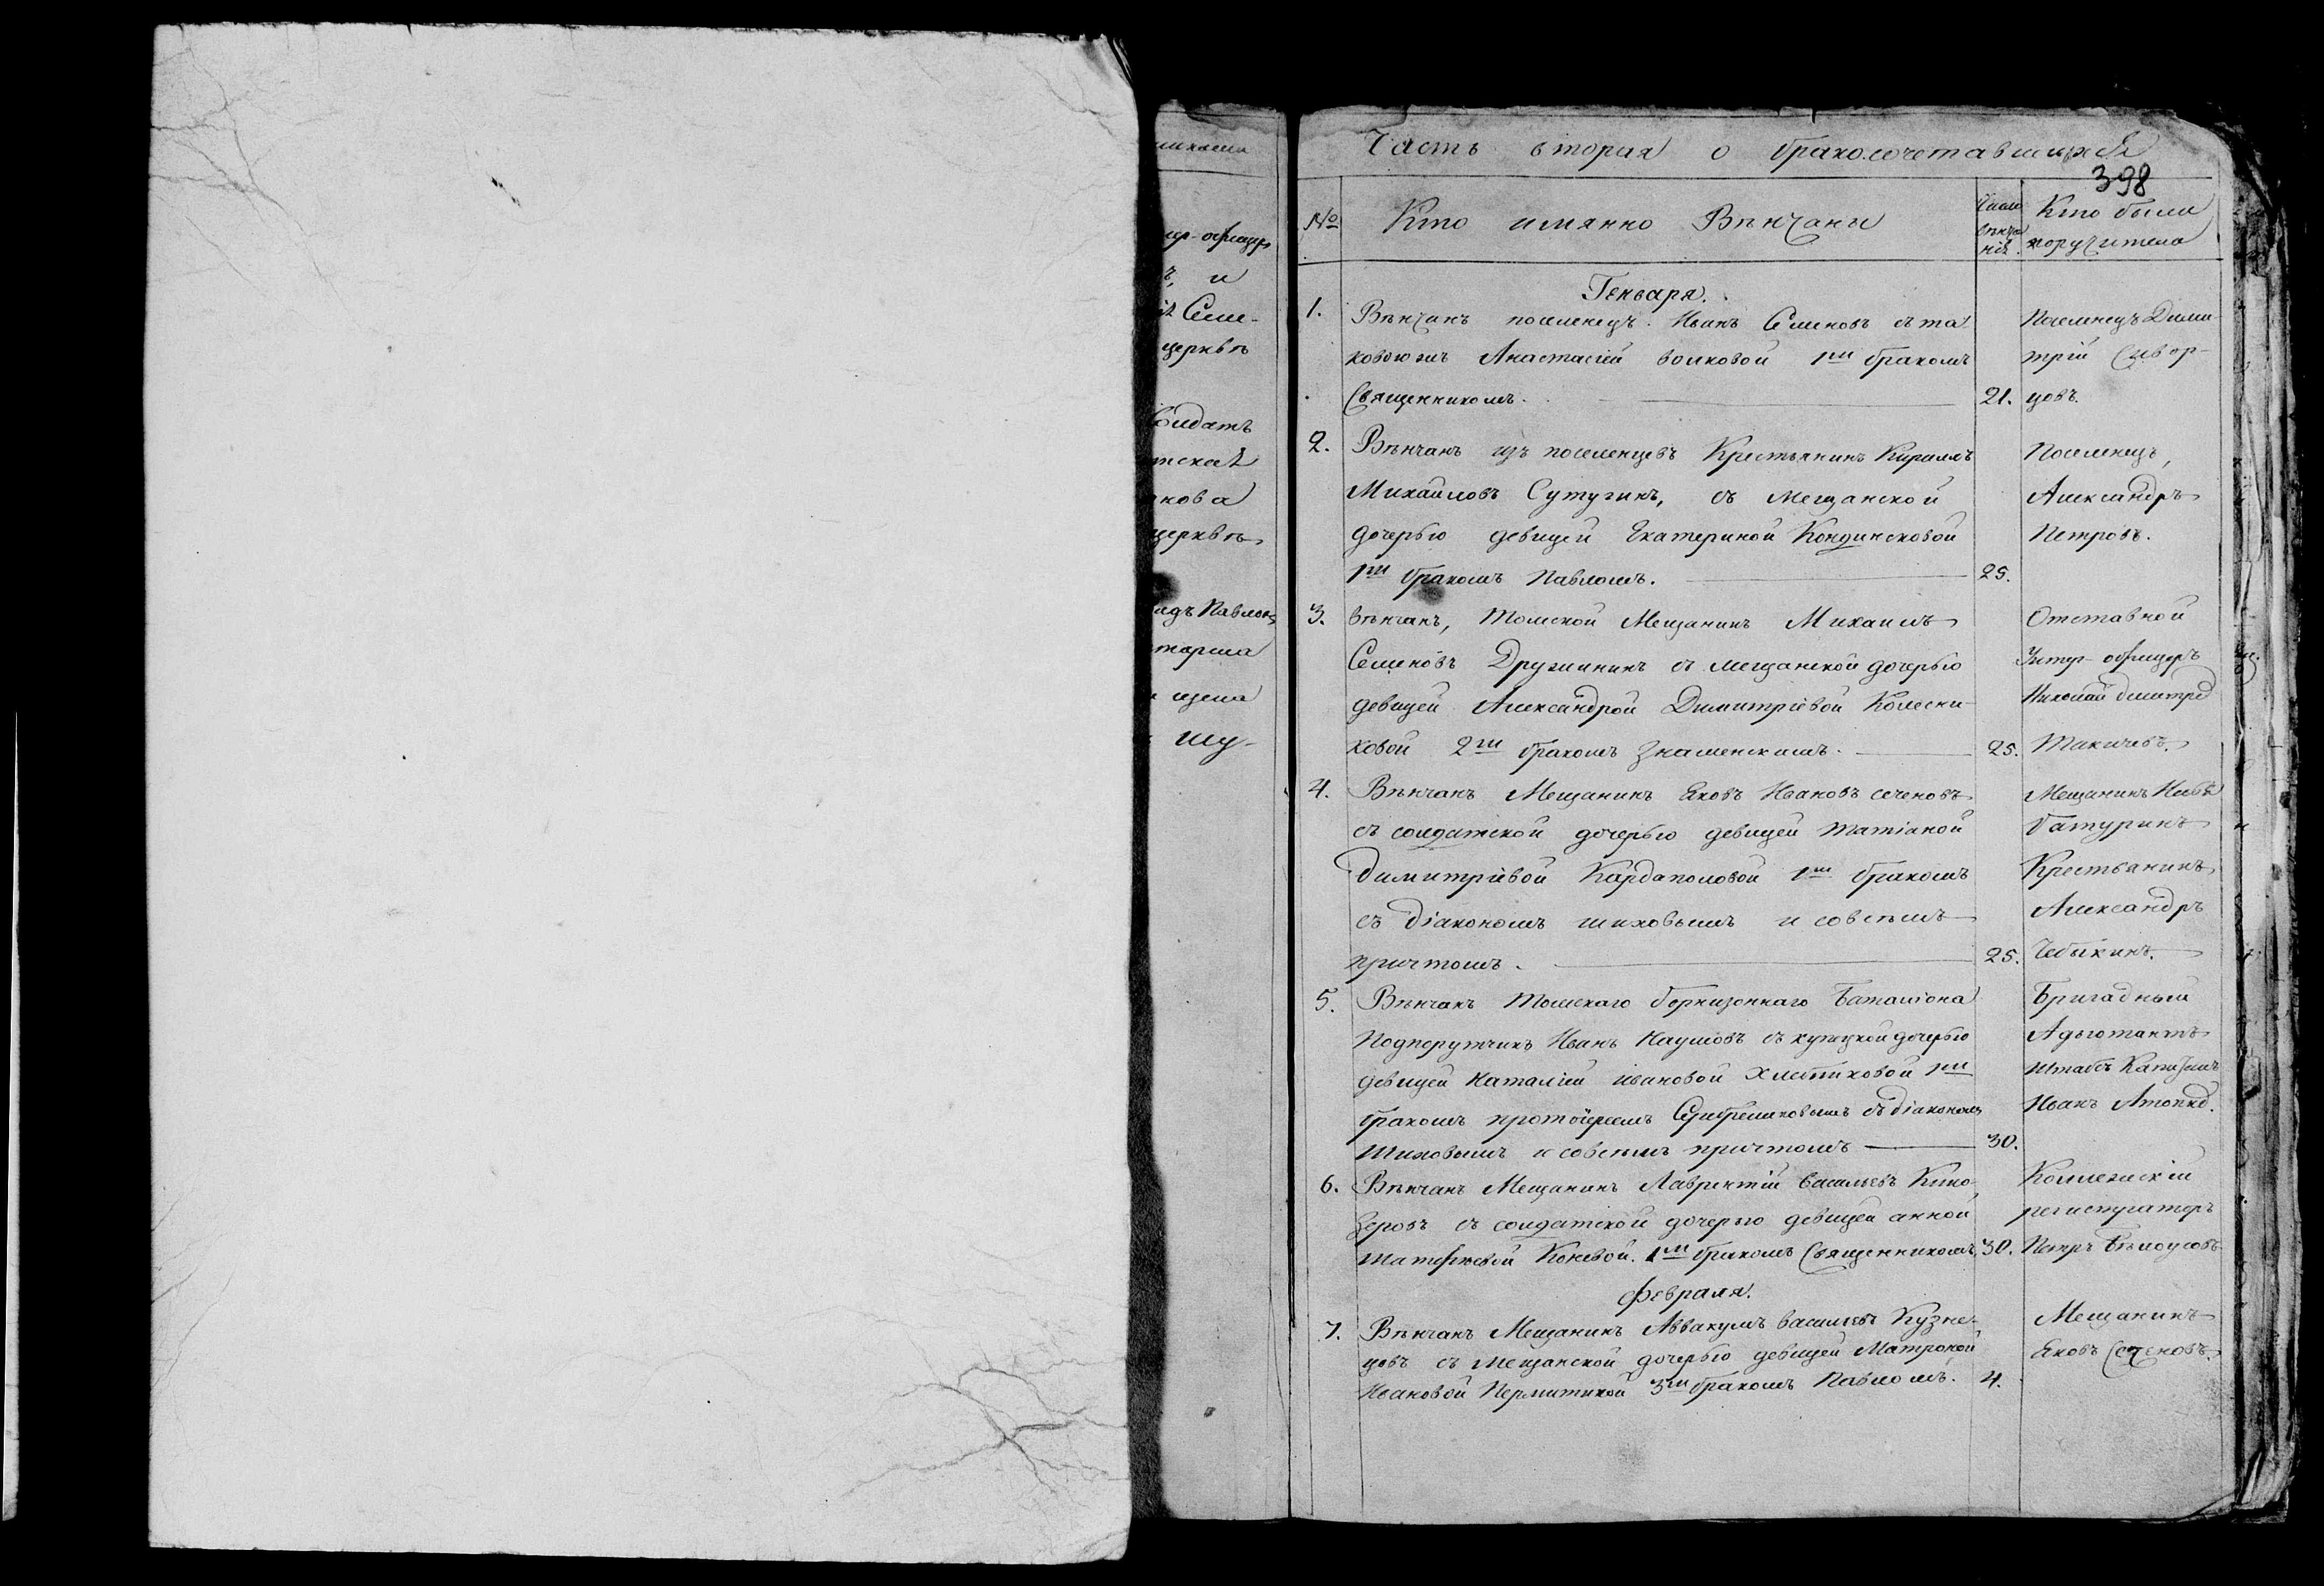 Часть вторая о бракосочетавшихся
398
№
Кто имянно Венчаны
Число
венча
нія.
Кто были
поручители
Генваря.
1.
Венчанъ поселенецъ Иванъ Семеновъ съ та
ковоюжъ Анастасіей Волковой 1мъ бракомъ
Священникомъ.
21.
Поселенецъ Дими-
трій Сивор-
цовъ.
2.
Вѣнчанъ изъ поселенцевъ Крестьянинъ Кирилъ
Михайловъ Сутугинъ, съ мещанской
дочерью девицей Екатериной Кондинсковой
1мъ бракомъ Павломъ.
25.
Поселенецъ,
Александръ
Петровъ.
3.
вѣнчанъ, Томской Мещанинъ Михаилъ
Семеновъ Дружининъ съ мещанской дочерью
девицей Александрой Димитріевой Колесни-
ковой 2мъ бракомъ Знаменскимъ.
25.
Отставной
Унтер-офицеръ
Николай
4.
Вѣнчанъ Мещанинъ Яковъ Ивановъ Сеченовъ
съ солдатской дочерью девицей Татіаной
Димитріевой Кардаполовой 1мъ бракомъ
съ Діакономъ шиховымъ и совсемъ
причтомъ.
25.
Мещанинъ
Батуринъ
Крестьянинъ
Александръ
Чебыкинъ.
5.
Вѣнчанъ Томскаго Горнизоннаго Баталіона
Подпорутчикъ Иванъ Наумовъ съ купецкой дочерью
девицей Наталіей Ивановой Хлестиковой 1мъ
бракомъ протоіереемъ съ Діакономъ
Шиховымъ и совсемъ причтомъ
30.
Бригадный
Адьютантъ
Штабсъ Капитанъ
Иванъ
6.
Вѣнчанъ Мещанинъ Лаврентій Васильевъ Кино-
зеровъ съ солдатской дочерью девицей Анной
Матфеевой Коневой. 1мъ бракомъ Священникомъ.
30.
Коллежскій
регистраторъ
Петръ Белоусовъ
Февраля.
7.
Вѣнчанъ Мещанинъ Аввакумъ Васильевъ Кузне-
цовъ съ мещанской дочерью девицей Матроной
Ивановой Пермитиной 3мъ бракомъ Павломъ.
4.
Мещанинъ
Яковъ Сеченовъ.